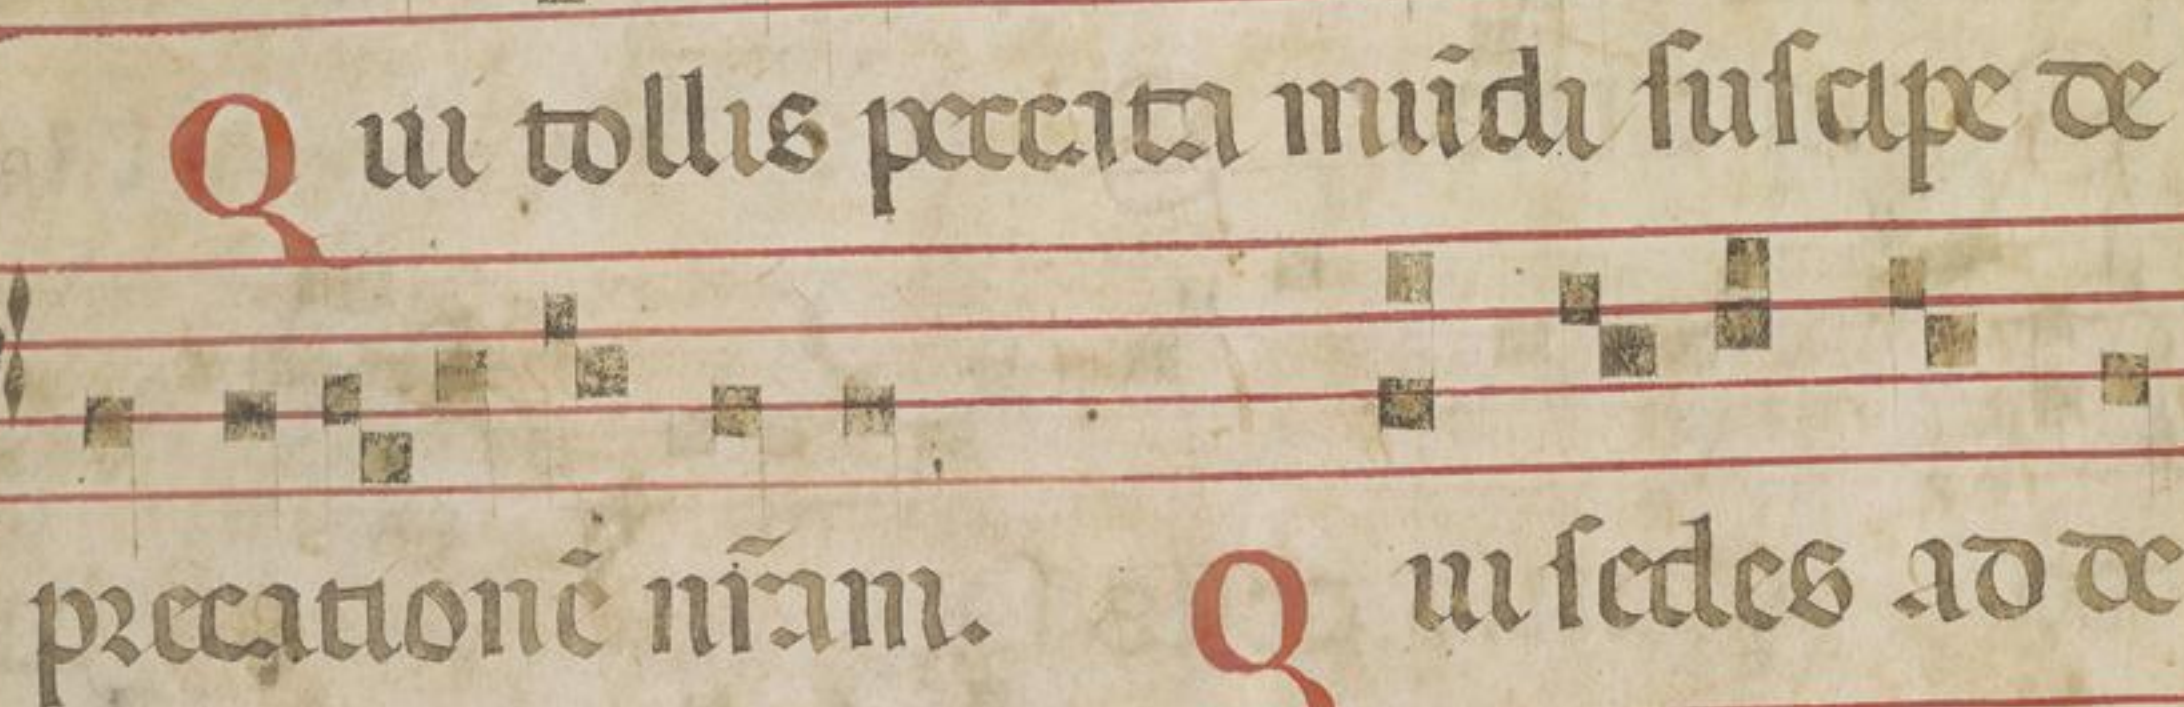 Qui tollis peccata mūdi ſuſcipe de
precationē nr̄am. Qui ſedes ad de